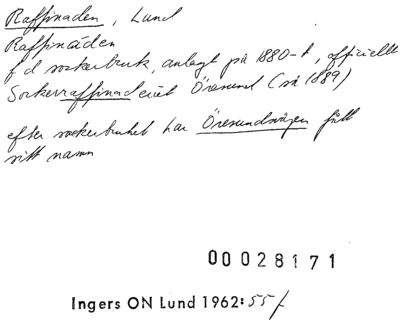 Raffinaden, Lund
Raffinaden
f d sockerbruk, anlagt på 1880-t, officiellt
Sockerraffinaderiet Öresund (så 1889)
efter sockerbruket har Öresundsvägen fått
sitt namn
00028171
Ingers ON Lund 1962:55f